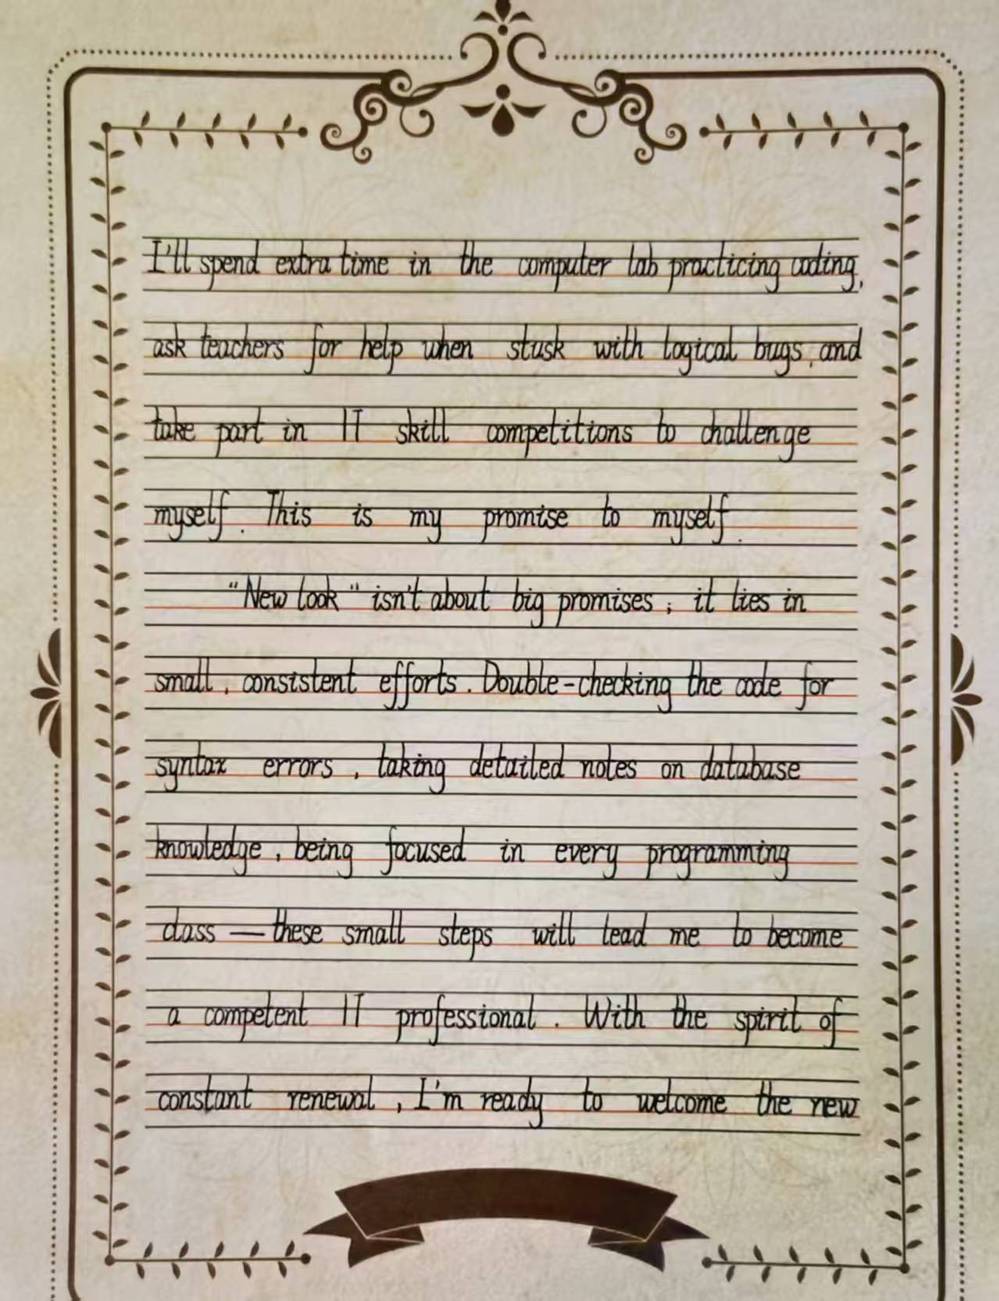 I'll spend extra time in the computer lab practicing coding,
ask teachers for help when stusk with logical bugs, and
take part in IT skill competitions to challenge
myself. This is my promise to myself.
"New look" isn't about big promises; it lies in
small, consistent efforts. Double-checking the code for
syntax errors, taking detailed notes on database
knowledge, being focused in every programming
class—these small steps will lead me to become
a competent IT professional. With the spirit of
constant renewal, I'm ready to welcome the new